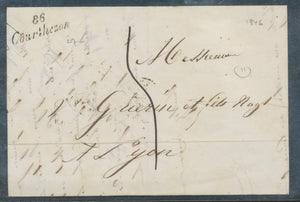 86
Courthezon
1846
Messieurs
(11)
Guérin et fils Negt
A Lyon